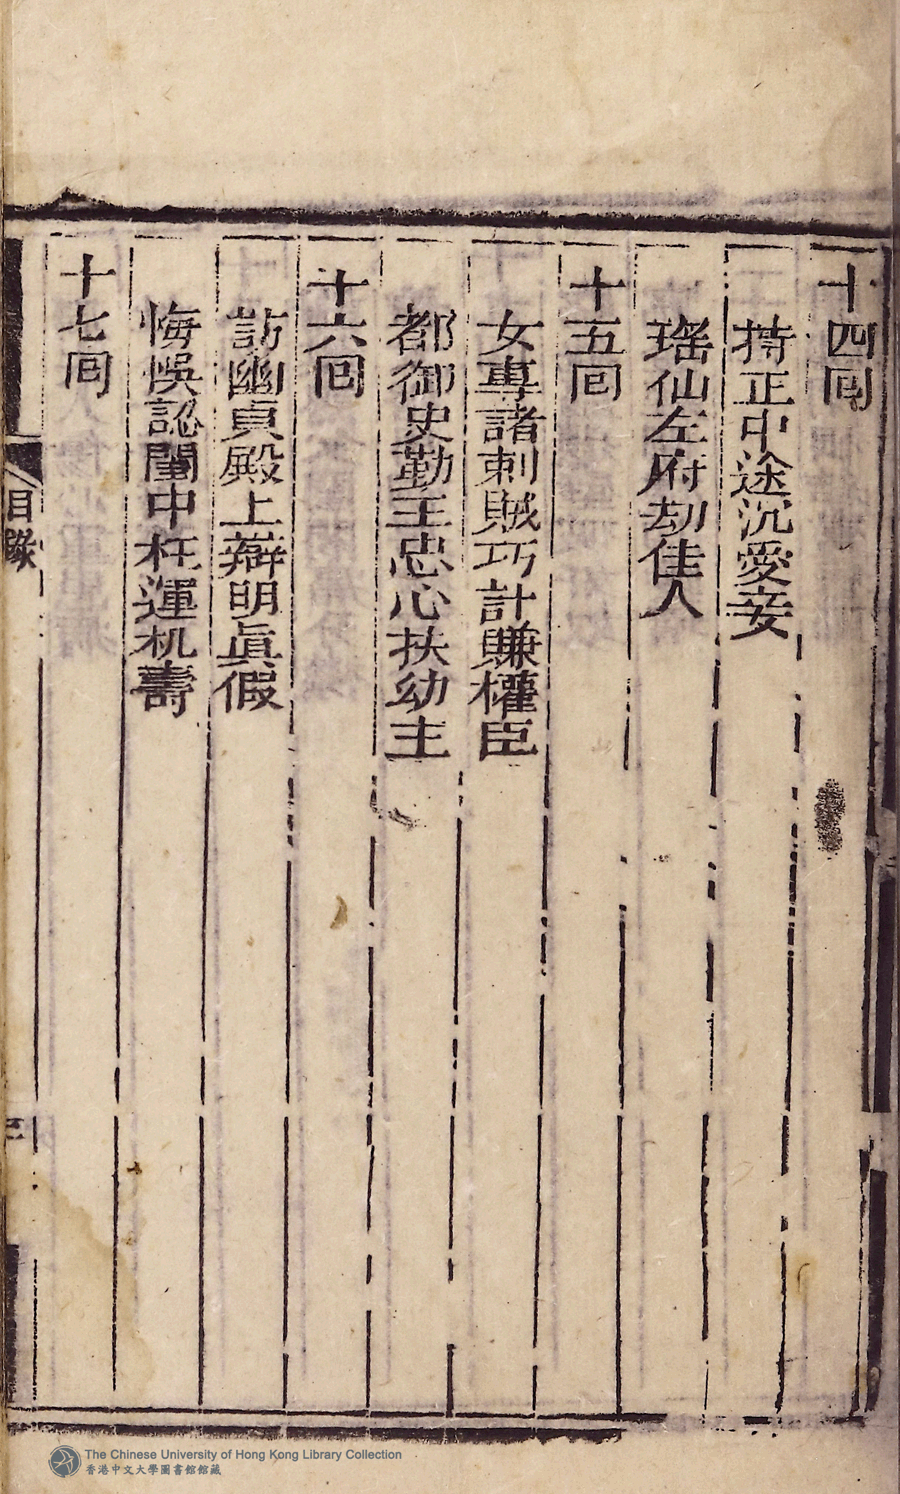 十四囘
持正中途沉愛妾
瑤仙左府劫佳人
十五囘
女專諸刺賊巧計賺權臣
都御史勤王忠心扶幼主
十六囘
訪幽貞殿上辯明眞假
悔悞認闈中枉運机壽
十七囘
目錄
The Chinese University of Hong Kong Library Collection
香港中文大學圖書館館藏